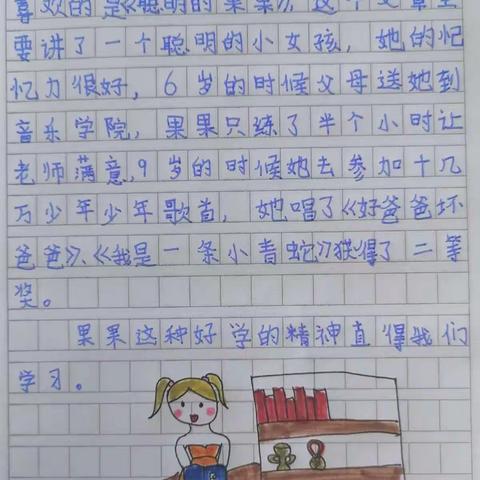 喜欢的是《聪明的果果》，这个文章主
要讲了一个聪明的小女孩，她的记
忆力很好，6岁的时候父母送她到
音乐学院，果果只练了半个小时让
老师满意，9岁的时候她去参加十几
万少年少年歌首，她唱了《好爸爸坏
爸爸》、《我是一条小青蛇》获得了二等
奖。
果果这种好学的精神直得我们
学习。